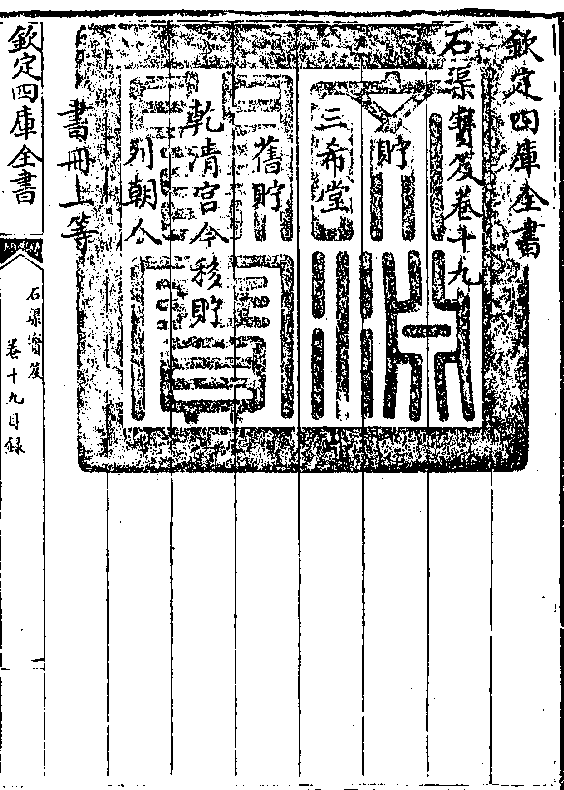 欽定四庫全書
石渠寶笈卷十九
貯
三希堂
舊貯
乾清宫今移貯
列朝人
書冊上等
欽定四庫全書
石渠寶笈
卷十九目録
一